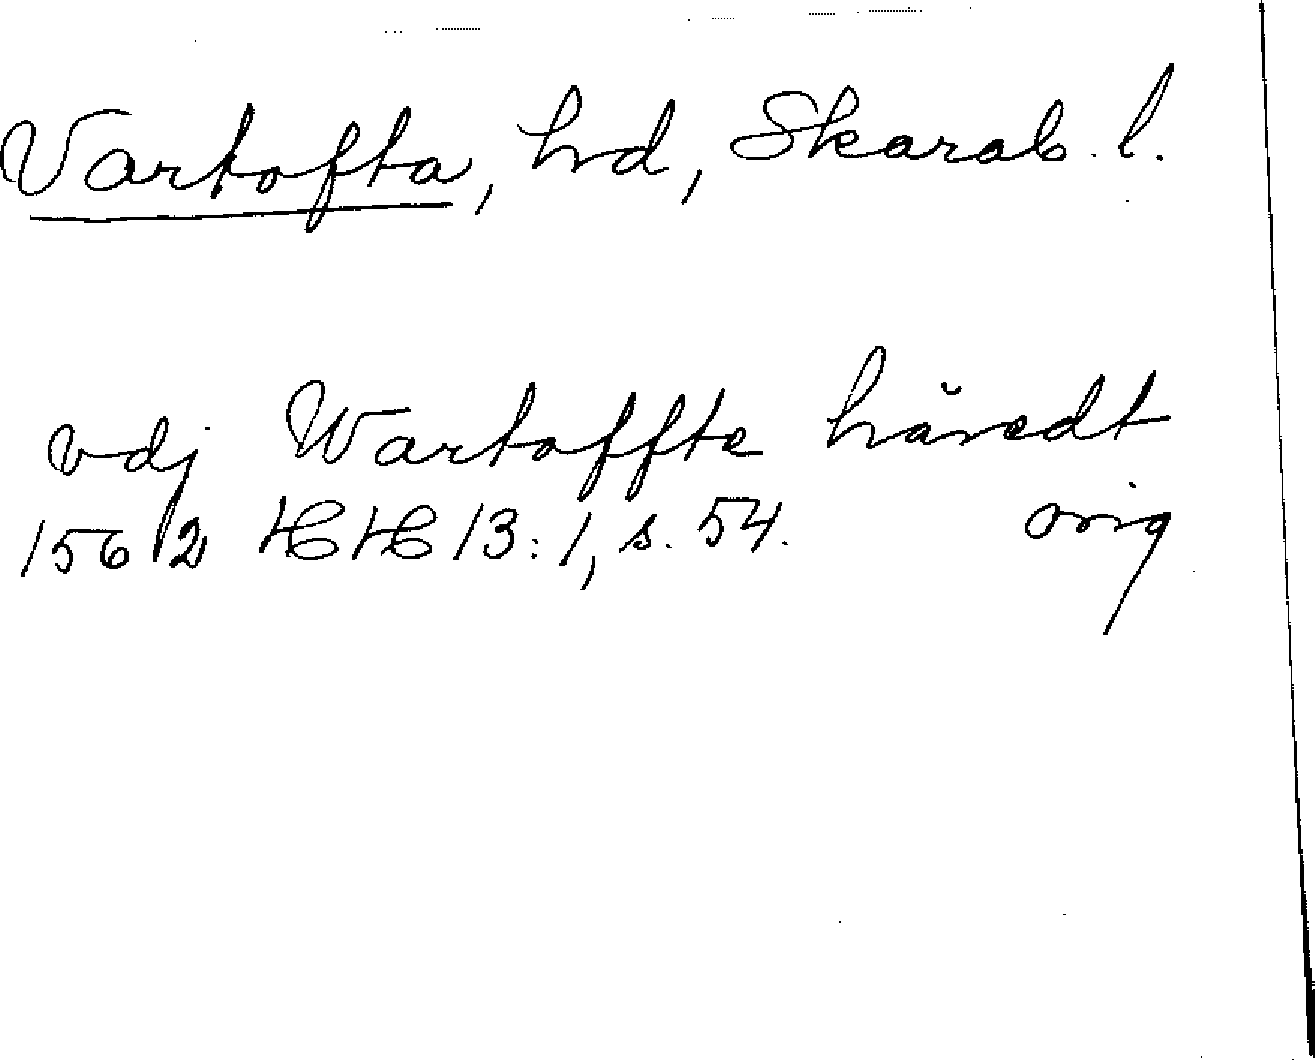 Vartofta, hd, Skarab. l.
vdj Wartoffte häredt
1562 HH 13:1, s. 54. orig